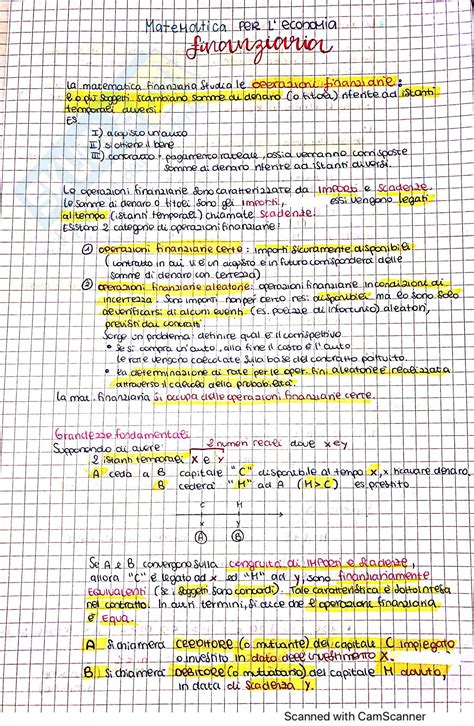 Matematica PER l'economia
finanziaria
la matematica finanziaria studia le operazioni finanziarie:
2 o più soggetti scambiano somme di denaro (o titoli) riferite ad istanti
temporali diversi.
ES
I) acquisto un'auto
II) si ottiene il bene
III) contratto → pagamento rateale, ossia verranno corrisposte
somme di denaro riferite ad istanti diversi.
Le operazioni finanziarie sono caratterizzate da IMPORTI e scadenze.
le somme di denaro o titoli sono gli IMPORTI, essi vengono legati
al tempo (istanti temporali) chiamate scadenze.
Esistono 2 categorie di operazioni finanziarie:
① operazioni finanziarie certe: importi sicuramente disponibili
(contratto in cui vi è un acquisto e in futuro corrisponderà delle
somme di denaro con certezza)
② operazioni finanziarie aleatorie: operazioni finanziarie in condizioni di
incertezza. Sono importi non per certo resi disponibili ma lo sono solo
al verificarsi di alcuni eventi (es. polizze di infortunio) aleatori,
previsti dai contratti
Sorge un problema: definire qual è il corrispettivo
• Se si compra un'auto, alla fine il costo è l'auto
le rate vengono calcolate sulla base del contratto pattuito.
• La determinazione di rate per le oper. fin. aleatorie è realizzata
attraverso il calcolo delle probabilità.
La mat. finanziaria si occupa delle operazioni finanziarie certe.
Grandezze fondamentali
Supponendo di avere: 2 numeri reali dove x e y
2 istanti temporali x e y
A cede a B capitale "C" disponibile al tempo x, x ricavare denaro.
B cederà "M" ad A (M>C) es prestito
C M
x y
A B
Se A e B convergono sulla congruità di IMPORTI e scadenze,
allora "C" è legato ad x ed "M" ad y, sono finanziariamente
EQUIVALENTI (se i soggetti sono concordi). Tale caratteristica è sottointesa
nel contratto. In altri termini, si dice che l'operazione finanziaria
è EQUA.
A Si chiamerà CREDITORE (o mutuante) del capitale C impiegato
o investito in data dell'investimento X.
B Si chiamerà DEBITORE (o mutuatario) del capitale M dovuto,
in data di scadenza y.
Scanned with CamScanner